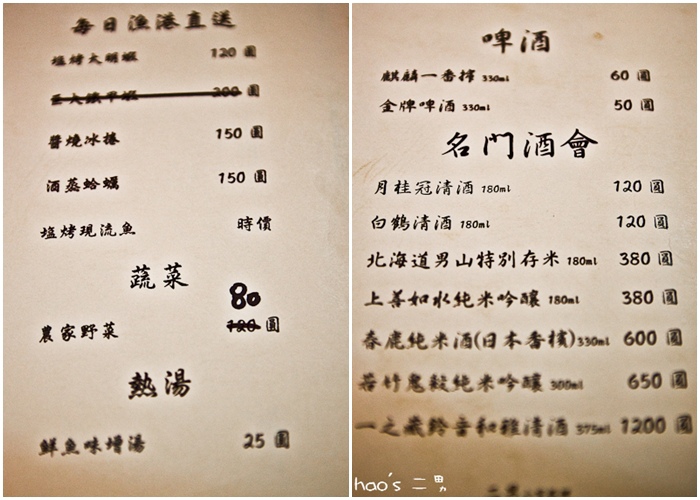 每日漁港直送
塩烤大明蝦 120圓
200圓
醬燒冰捲 150圓
酒蒸蛤蠣 150圓
塩烤現流魚 時價
蔬菜
80
農家野菜 120圓
熱湯
鮮魚味增湯 25圓
啤酒
麒麟一番搾 330ml 60圓
金牌啤酒 330ml 50圓
名門酒會
月桂冠清酒 180ml 120圓
白鶴清酒 180ml 120圓
北海道男山特別存米 180ml 380圓
上善如水純米吟釀 180ml 380圓
春鹿純米酒(日本香檳)330ml 600圓
若竹鬼殺純米吟釀 300ml 650圓
一之蔵鈴音和雅清酒 375ml 1200圓
hao's 二男